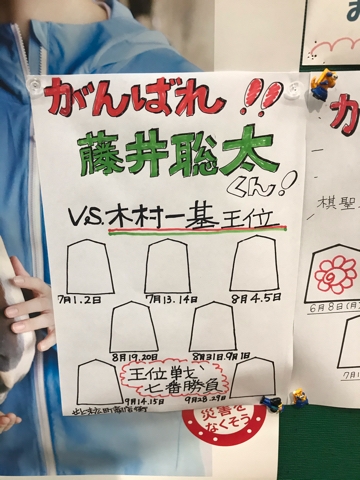 がんばれ!!
藤井聡太
くん!
V.S.木村一基王位
7月1.2日
7月13.14日
8月4.5日
8月19.20日
8月31日.9月1日
王位戦
七番勝負
9月14.15日
9月28.29日
災害を
なくそう
棋聖
6月8日(月)
7月